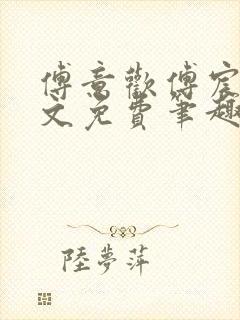 傅意歡傅宸
文免費筆趣
陸夢萍